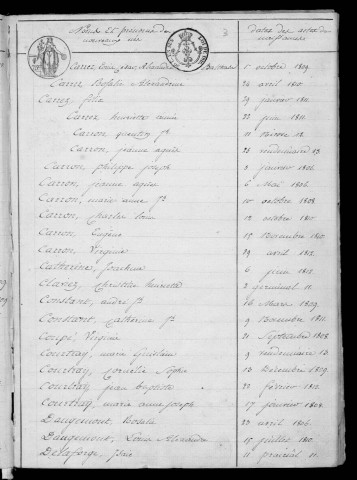 Noms et prénoms des nouveaux nés
dates des actes de naissances
Carrez Louis Alexandre 5 octobre 1809
Carrez Rosalie Alexandrine 26 avril 1810
Carrez 29 janvier 1811
Carrez henriette 22 juin 1811
Carron quentin jh 11 13
Carron, jeanne agnès 28 vendemiaire 13
Carron philippe joseph 2 janvier 1806
Carron, jeanne agnès 6 Mai 1806
Carron, marie anne jh 10 octobre 1808
Carron, Charles Louis 12 octobre 1810
Carron, Eugène 15 Decembre 1810
Carron, Virginie 29 avril 1812
Catherine, Joachim 6 juin 1812
Clarez, Christine henriette 2 germinal 11
Constant, andré jh 26 Mars 1809
Constant, Catherine jh 9 Decembre 1811
Coupé, Virginie 21 Septembre 1808
Courtray, marie Guislain 9 vendemiaire 13
Courtray, Cornélie Sophie 13 Decembre 1809
Courtray, jean baptiste 20 février 1812
Courtray, marie anne joseph 17 janvier 1808
Daugemont, Rosalie 23 avril 1806
Daugemont, Louis Alexandre 15 juillet 1810
Delaforge, 11 prairial 11